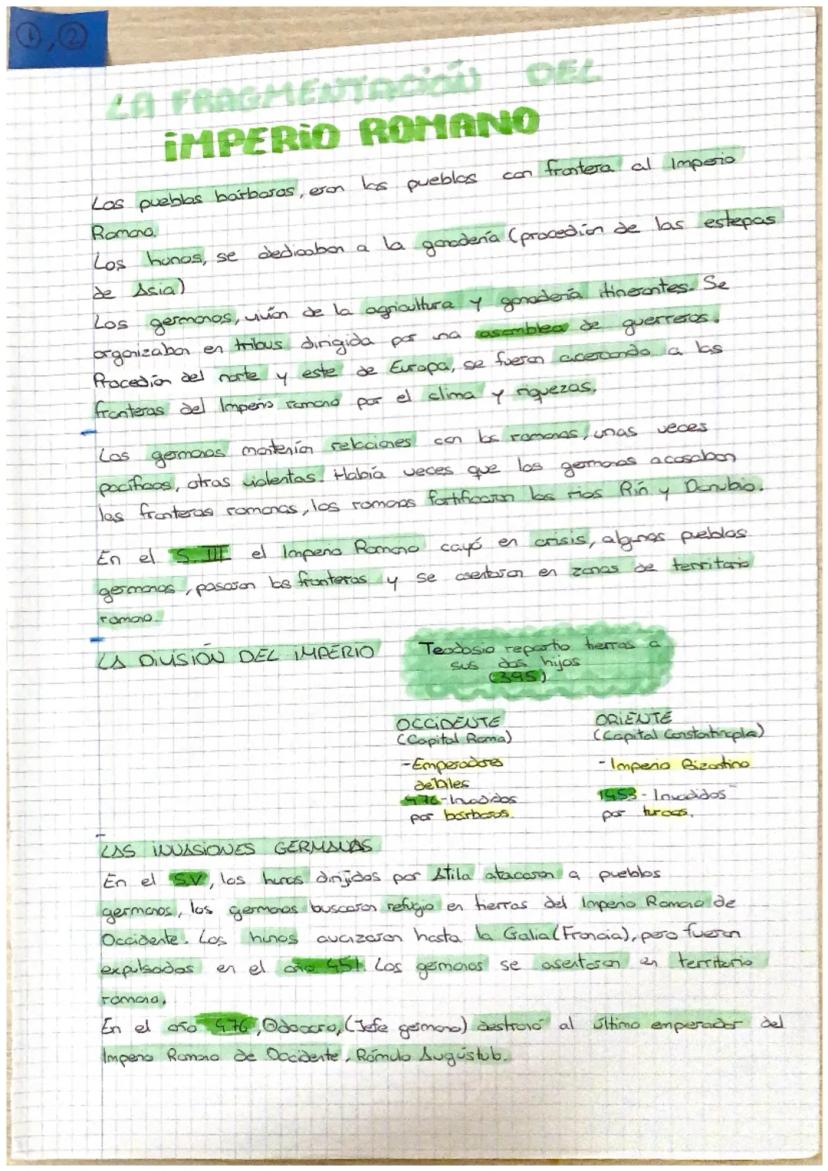 ①, ②
LA FRAGMENTACIÓN DEL
IMPERIO ROMANO
Los pueblos bárbaros, eran los pueblos con frontera al Imperio
Romano.
Los hunos, se dedicaban a la ganadería (procedían de las estepas
de Asia)
Los germanos, vivían de la agricultura y ganadería itinerantes. Se
organizaban en tribus dirigida por una asamblea de guerreros.
Procedían del norte y este de Europa, se fueron acercando a las
fronteras del Imperio romano por el clima y riquezas.
Los germanos mantenían relaciones con los romanos, unas veces
pacíficas, otras violentas. Había veces que los germanos acosaban
las fronteras romanas, los romanos fortificaron los ríos Rin y Danubio.
En el S.III el Imperio Romano cayó en crisis, algunos pueblos
germanos, pasaron las fronteras y se asentaron en zonas de territorio
romano.
LA DIVISIÓN DEL IMPERIO
Teodosio repartio tierras a
sus dos hijos
(395)
OCCIDENTE
(Capital Roma)
-Emperadores
debiles
476-Invadidos
por bárbaros.
ORIENTE
(Capital Constantinopla)
-Imperio Bizantino
1453-Invadidos
por turcos.
LAS INVASIONES GERMANAS
En el S.V, los hunos dirijidos por Atila atacaron a pueblos
germanos, los germanos buscaron refugio en tierras del Imperio Romano de
Occidente. Los hunos avanzaron hasta la Galia (Francia), pero fueron
expulsados en el año 451. Los germanos se asentaron en territorio
romano.
En el año 476, Odoacro, (Jefe germano) destronó al último emperador del
Imperio Romano de Occidente, Rómulo Augústulo.